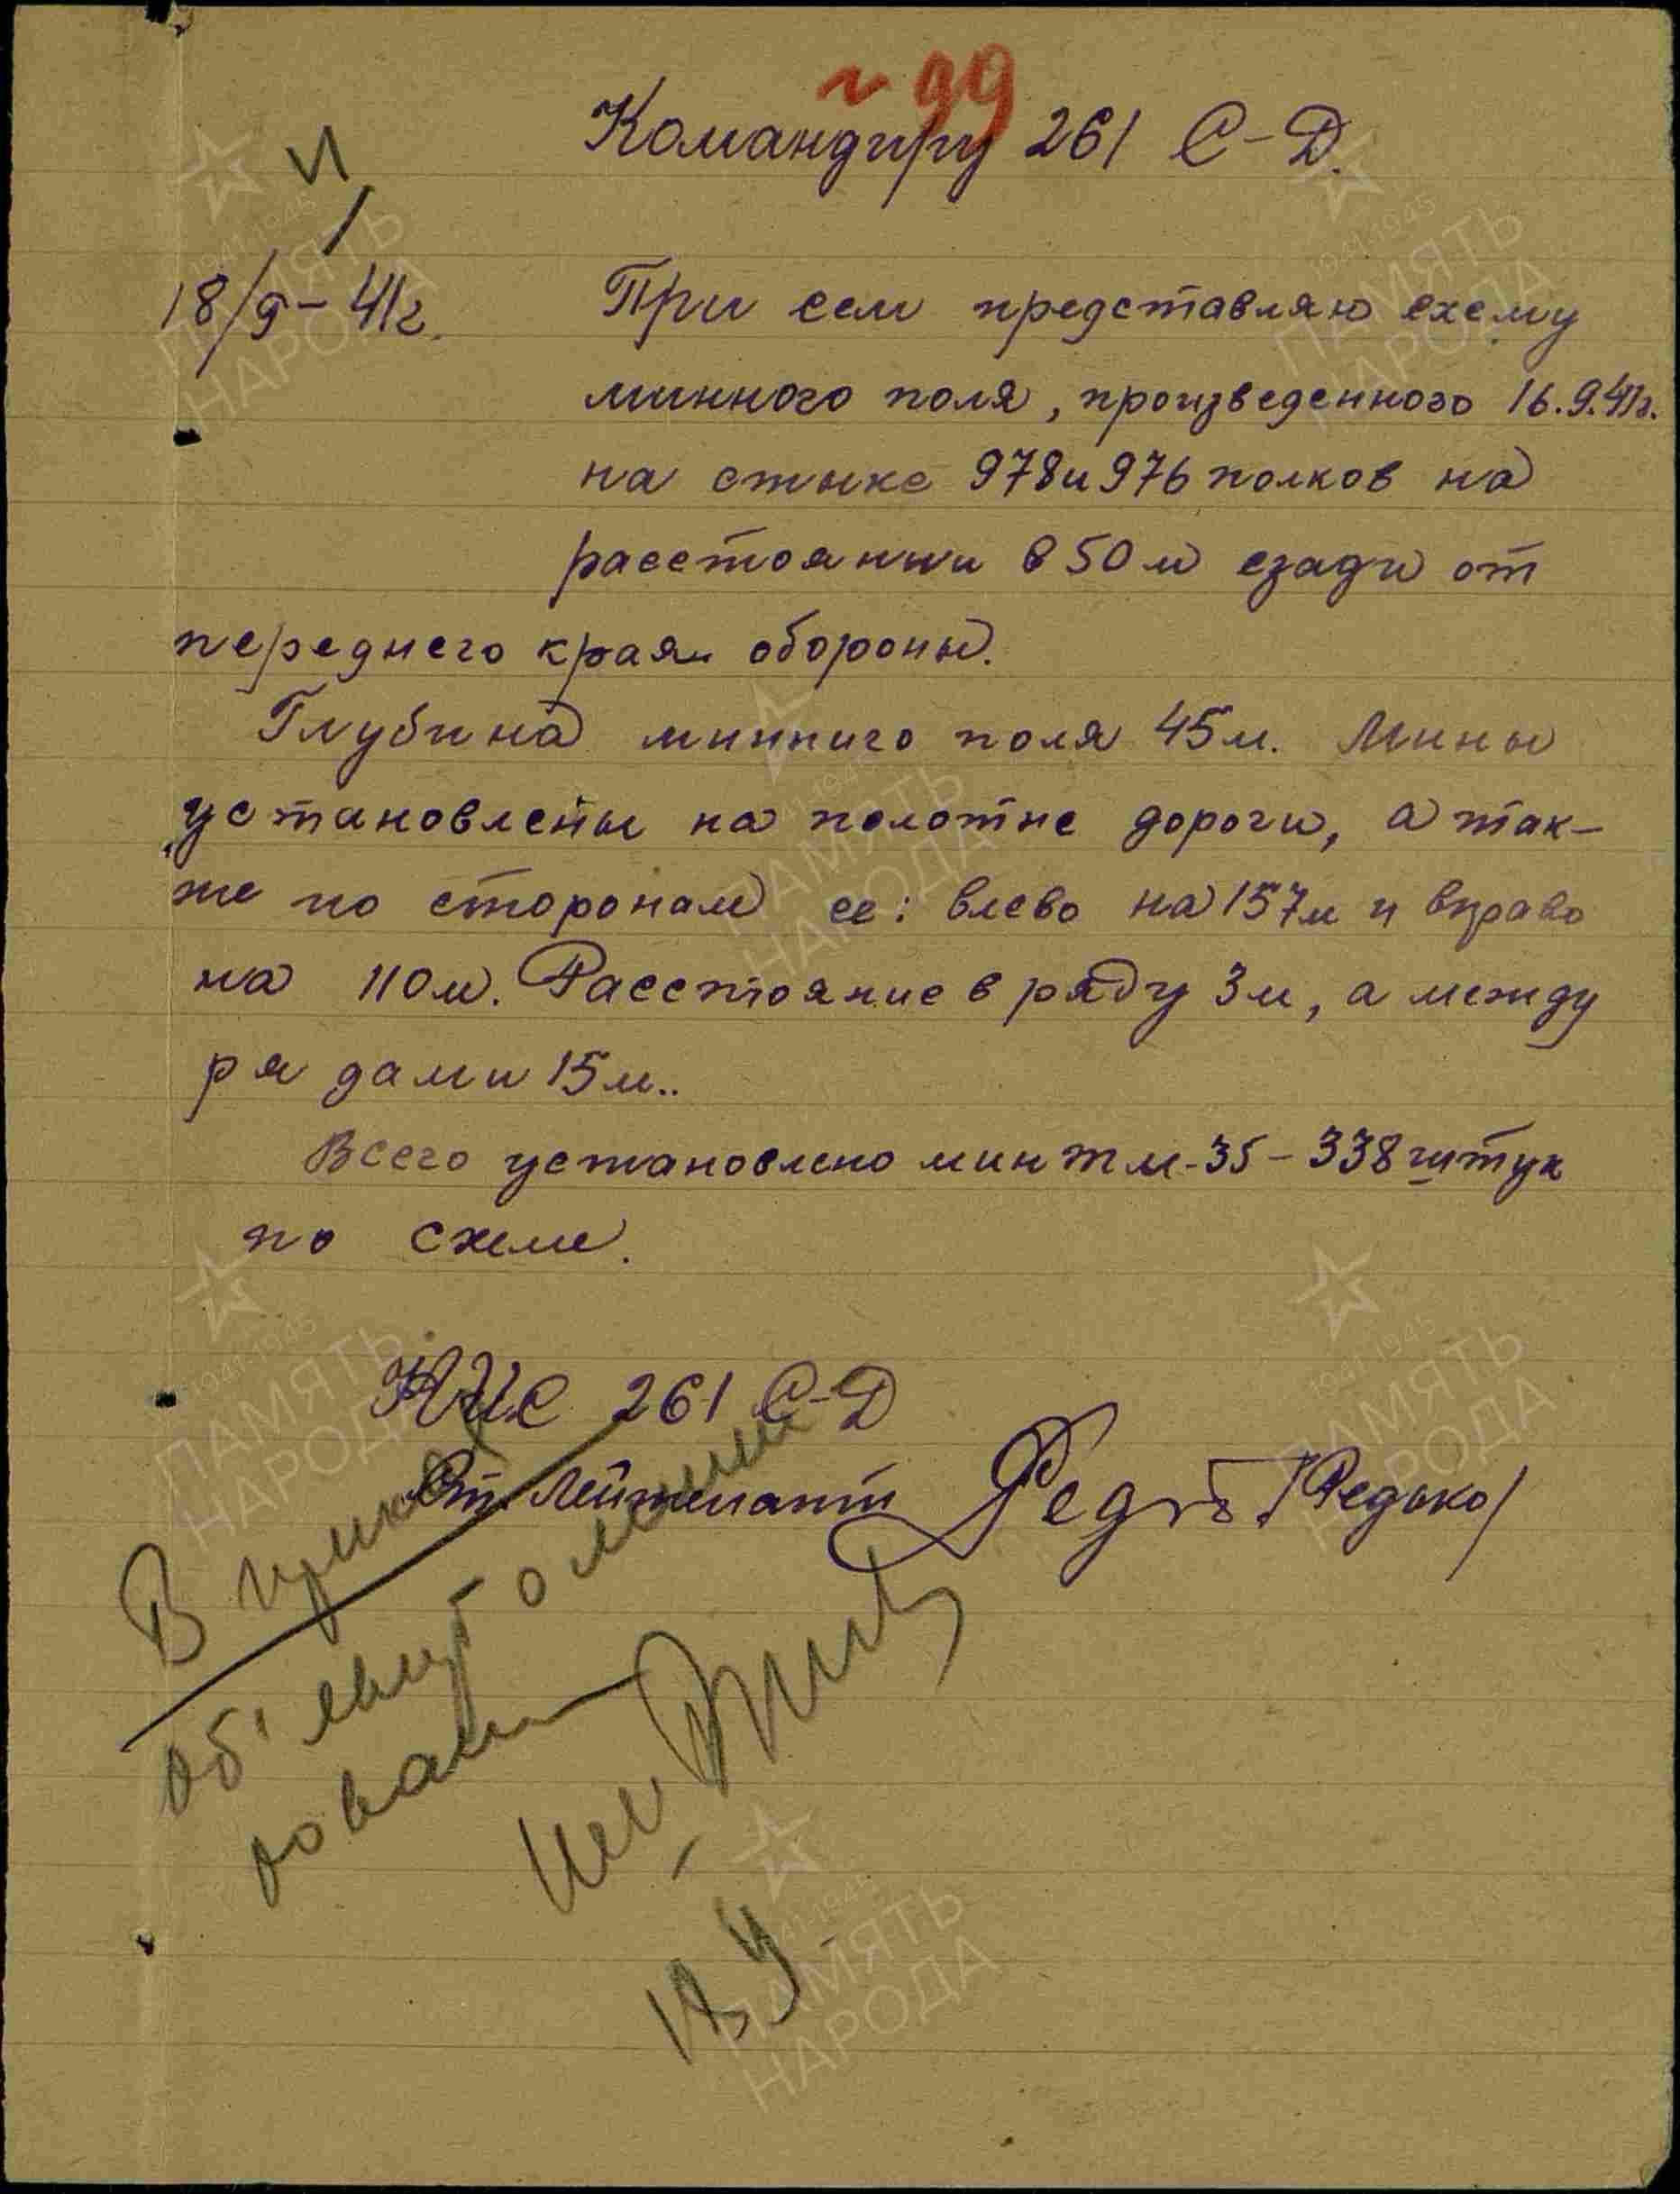 99
Командиру 261 С-Д.
18/9-41г.
При сем представляю схему
минного поля, произведенного 16.9.41г.
на стыке 978 и 976 полков на
расстоянии в 50 м сзади от
переднего края обороны.
Глубина минного поля 45 м. Мины
установлены на полотне дороги, а так-
же по сторонам ее: влево на 157 м и вправо
на 110 м. Расстояние в ряду 3 м, а между
рядами 15 м..
Всего установлено мин тм-35 - 338 штук
по схеме.
261 С-Д
Ст. Лейтенант Редько /Редько/
В
о